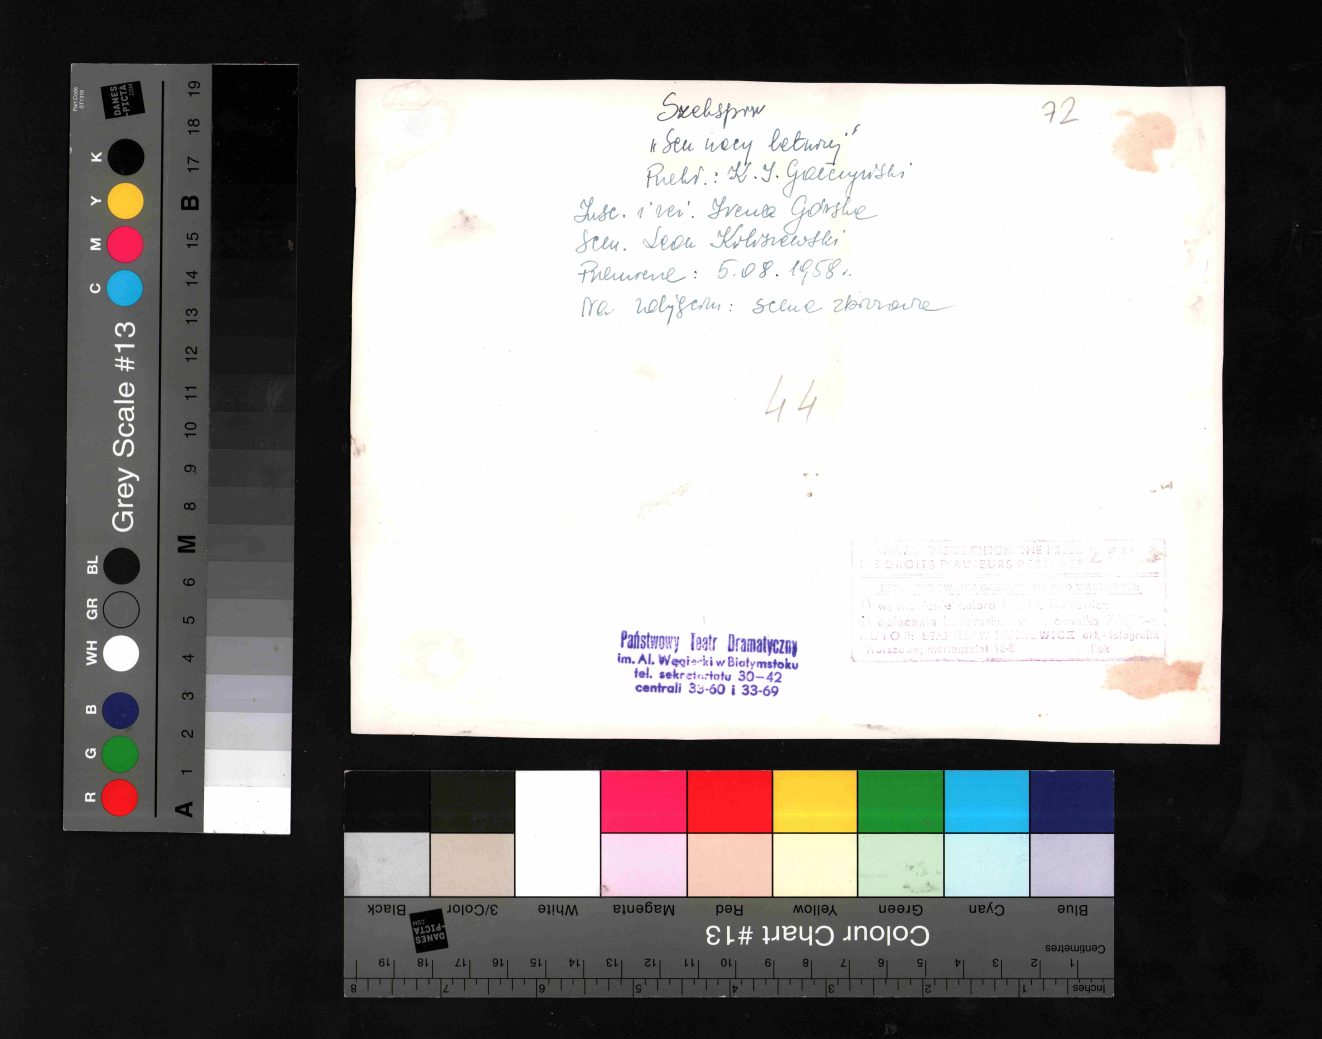 Szekspir
72
"Sen nocy letniej"
Przekł.: K. I. Gałczyński
Insc. i reż. Irena Górska
Scen. Leon Kołoszewski
Premiera: 5.08.1958r.
Na zdjęciu: scena zbiorowa
44
Państwowy Teatr Dramatyczny
im. Al. Węgierki w Białymstoku
tel. sekretariatu 30-42
centrali 33-60 i 33-69
LES DROITS D'AUTEURS
Warszawa, Mariensztat
DANES-PICTA.COM
Grey Scale #13
R G B WH GR BL C M Y K
A 1 2 3 4 5 6 M 8 9 10 11 12 13 14 15 B 17 18 19
Black 3/Color White Magenta Red Yellow Green Cyan Blue
DANES-PICTA.COM
Colour Chart #13
Centimetres
1 2 3 4 5 6 7 8 9 10 11 12 13 14 15 16 17 18 19
Inches 1 2 3 4 5 6 7 8